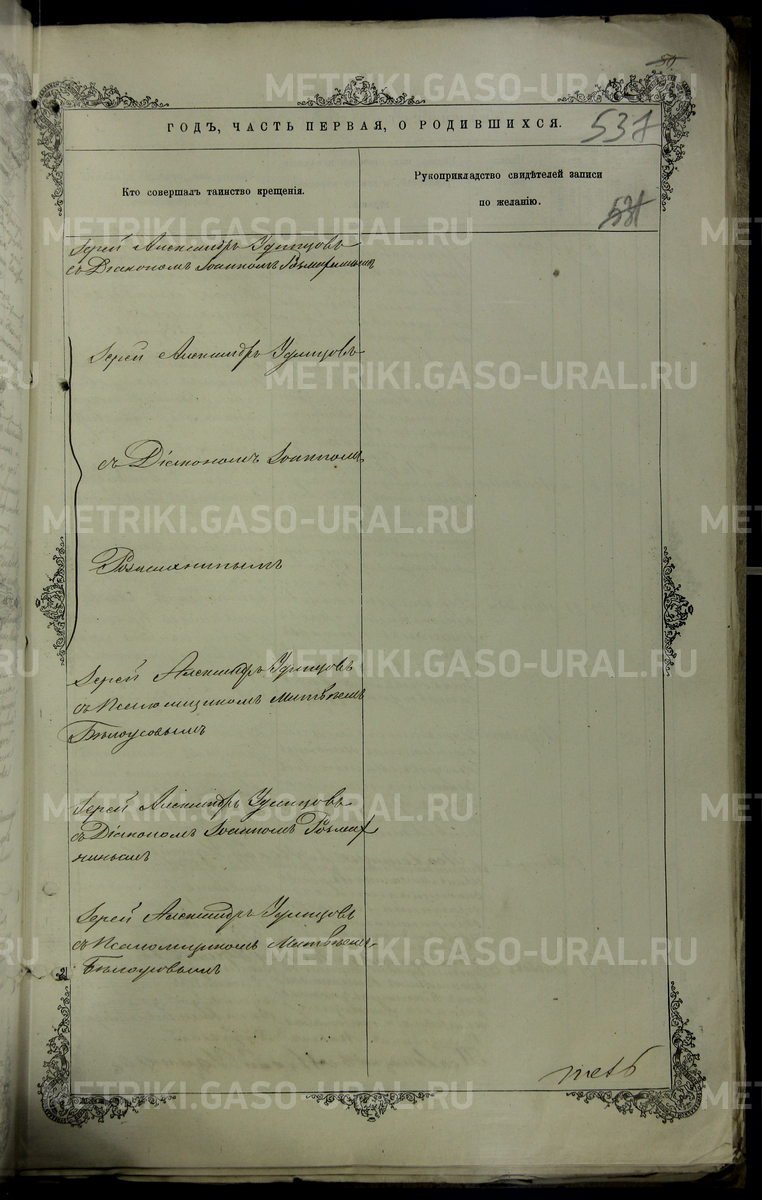 METRIKI.GASO-URAL.RU
ГОДЪ, ЧАСТЬ ПЕРВАЯ, О РОДИВШИХСЯ.
537
Кто совершалъ таинство крещенія.
Рукоприкладство свидѣтелей записи
по желанію.
537
METRIKI.GASO-URAL.RU
Іерей Александръ Удинцовъ
съ Діакономъ Іоанномъ
Іерей Александръ Удинцовъ
METRIKI.GASO-URAL.RU
съ Діакономъ Іоанномъ
METRIKI.GASO-URAL.RU
METRIKI.GASO-URAL.RU
Іерей Александръ Удинцовъ
съ Псаломщикомъ Матвѣемъ
Бѣлоусовымъ
METRIKI.GASO-URAL.RU
Іерей Александръ Удинцовъ
съ Діакономъ Іоанномъ
Іерей Александръ Удинцовъ
съ Псаломщикомъ Матвѣемъ
METRIKI.GASO-URAL.RU
Бѣлоусовымъ
METRIKI.GASO-URAL.RU